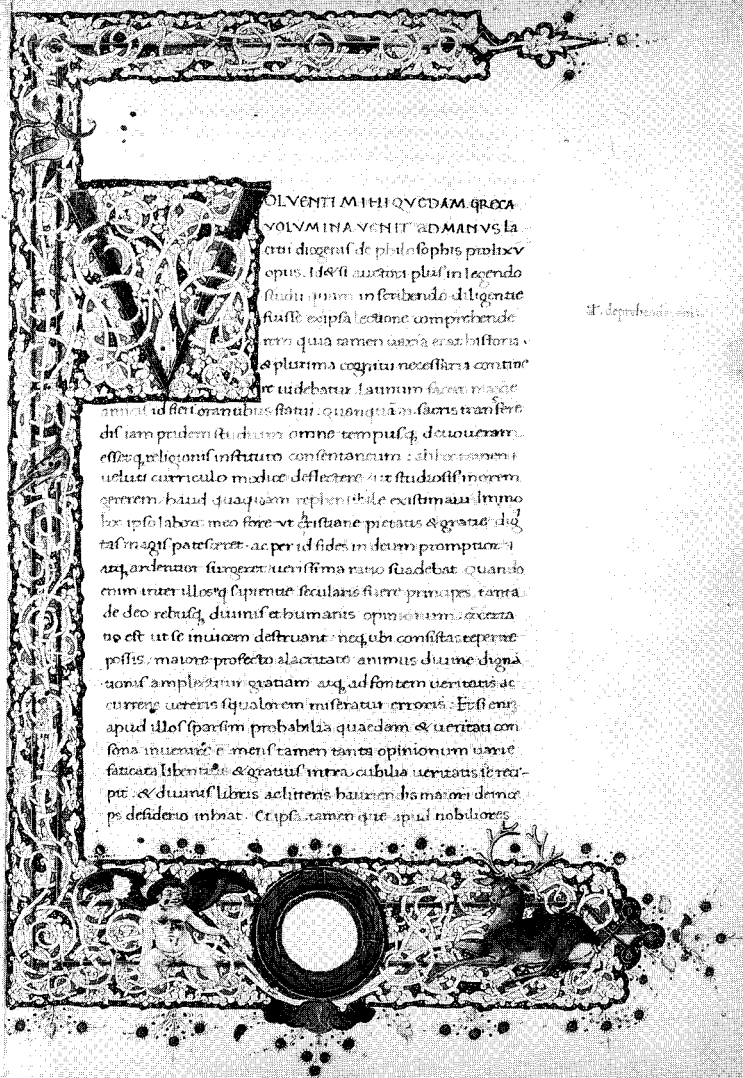 VOLVENTI MIHI QVEDAM GRECA
VOLVMINA VENIT AD MANVS La
ertii diogenis de philosophis prolixũ
opus. Id & si auctori plus in legendo
studii quam in scribendo diligentie
fuisse ex ipsa lectione comprehende
rem quia tamen uaria erat historia
& plurima cognitu necessaria contine
re uidebatur Latinum facere
id fieri orantibus statui. quanquã sacris transfere
dis iam pridem studium omne tempusq; deuoueram
esseq; religionis instituto consentaneum: ab hoc tamen
ueluti curriculo modice deflectere ut studiosis morem
gererem haud quaquam reprehensibile existimaui Immo
hoc ipso labore meo fore ut christiane pietatis & gratie dig
tas magis patesceret ac per id fides in deum promptior
atq; ardentior surgeret uerissima ratio suadebat Quando
enim inter illos q sapientie secularis fuere principes tanta
de deo rebusq; diuinis et humanis opinionum
tio est ut se inuicem destruant neq; ubi consistas reperire
possis. maiore profecto alacritate animus diuine digna
tionis amplectitur gratiam atq; ad fontem ueritatis ac
currens ueteris squalorem miseratur erroris. Et si enĩ
apud illos sparsim probabilia quaedam & ueritati con
sona inuenire ẽ mens tamen tanta opinionum uarie
fatigata libentius & gratius intra cubilia ueritatis se reci-
pit. & diuinis libris ac litteris hauriendis maiori deince
ps desiderio inhiat. Et ipsa tamen que apud nobiliores